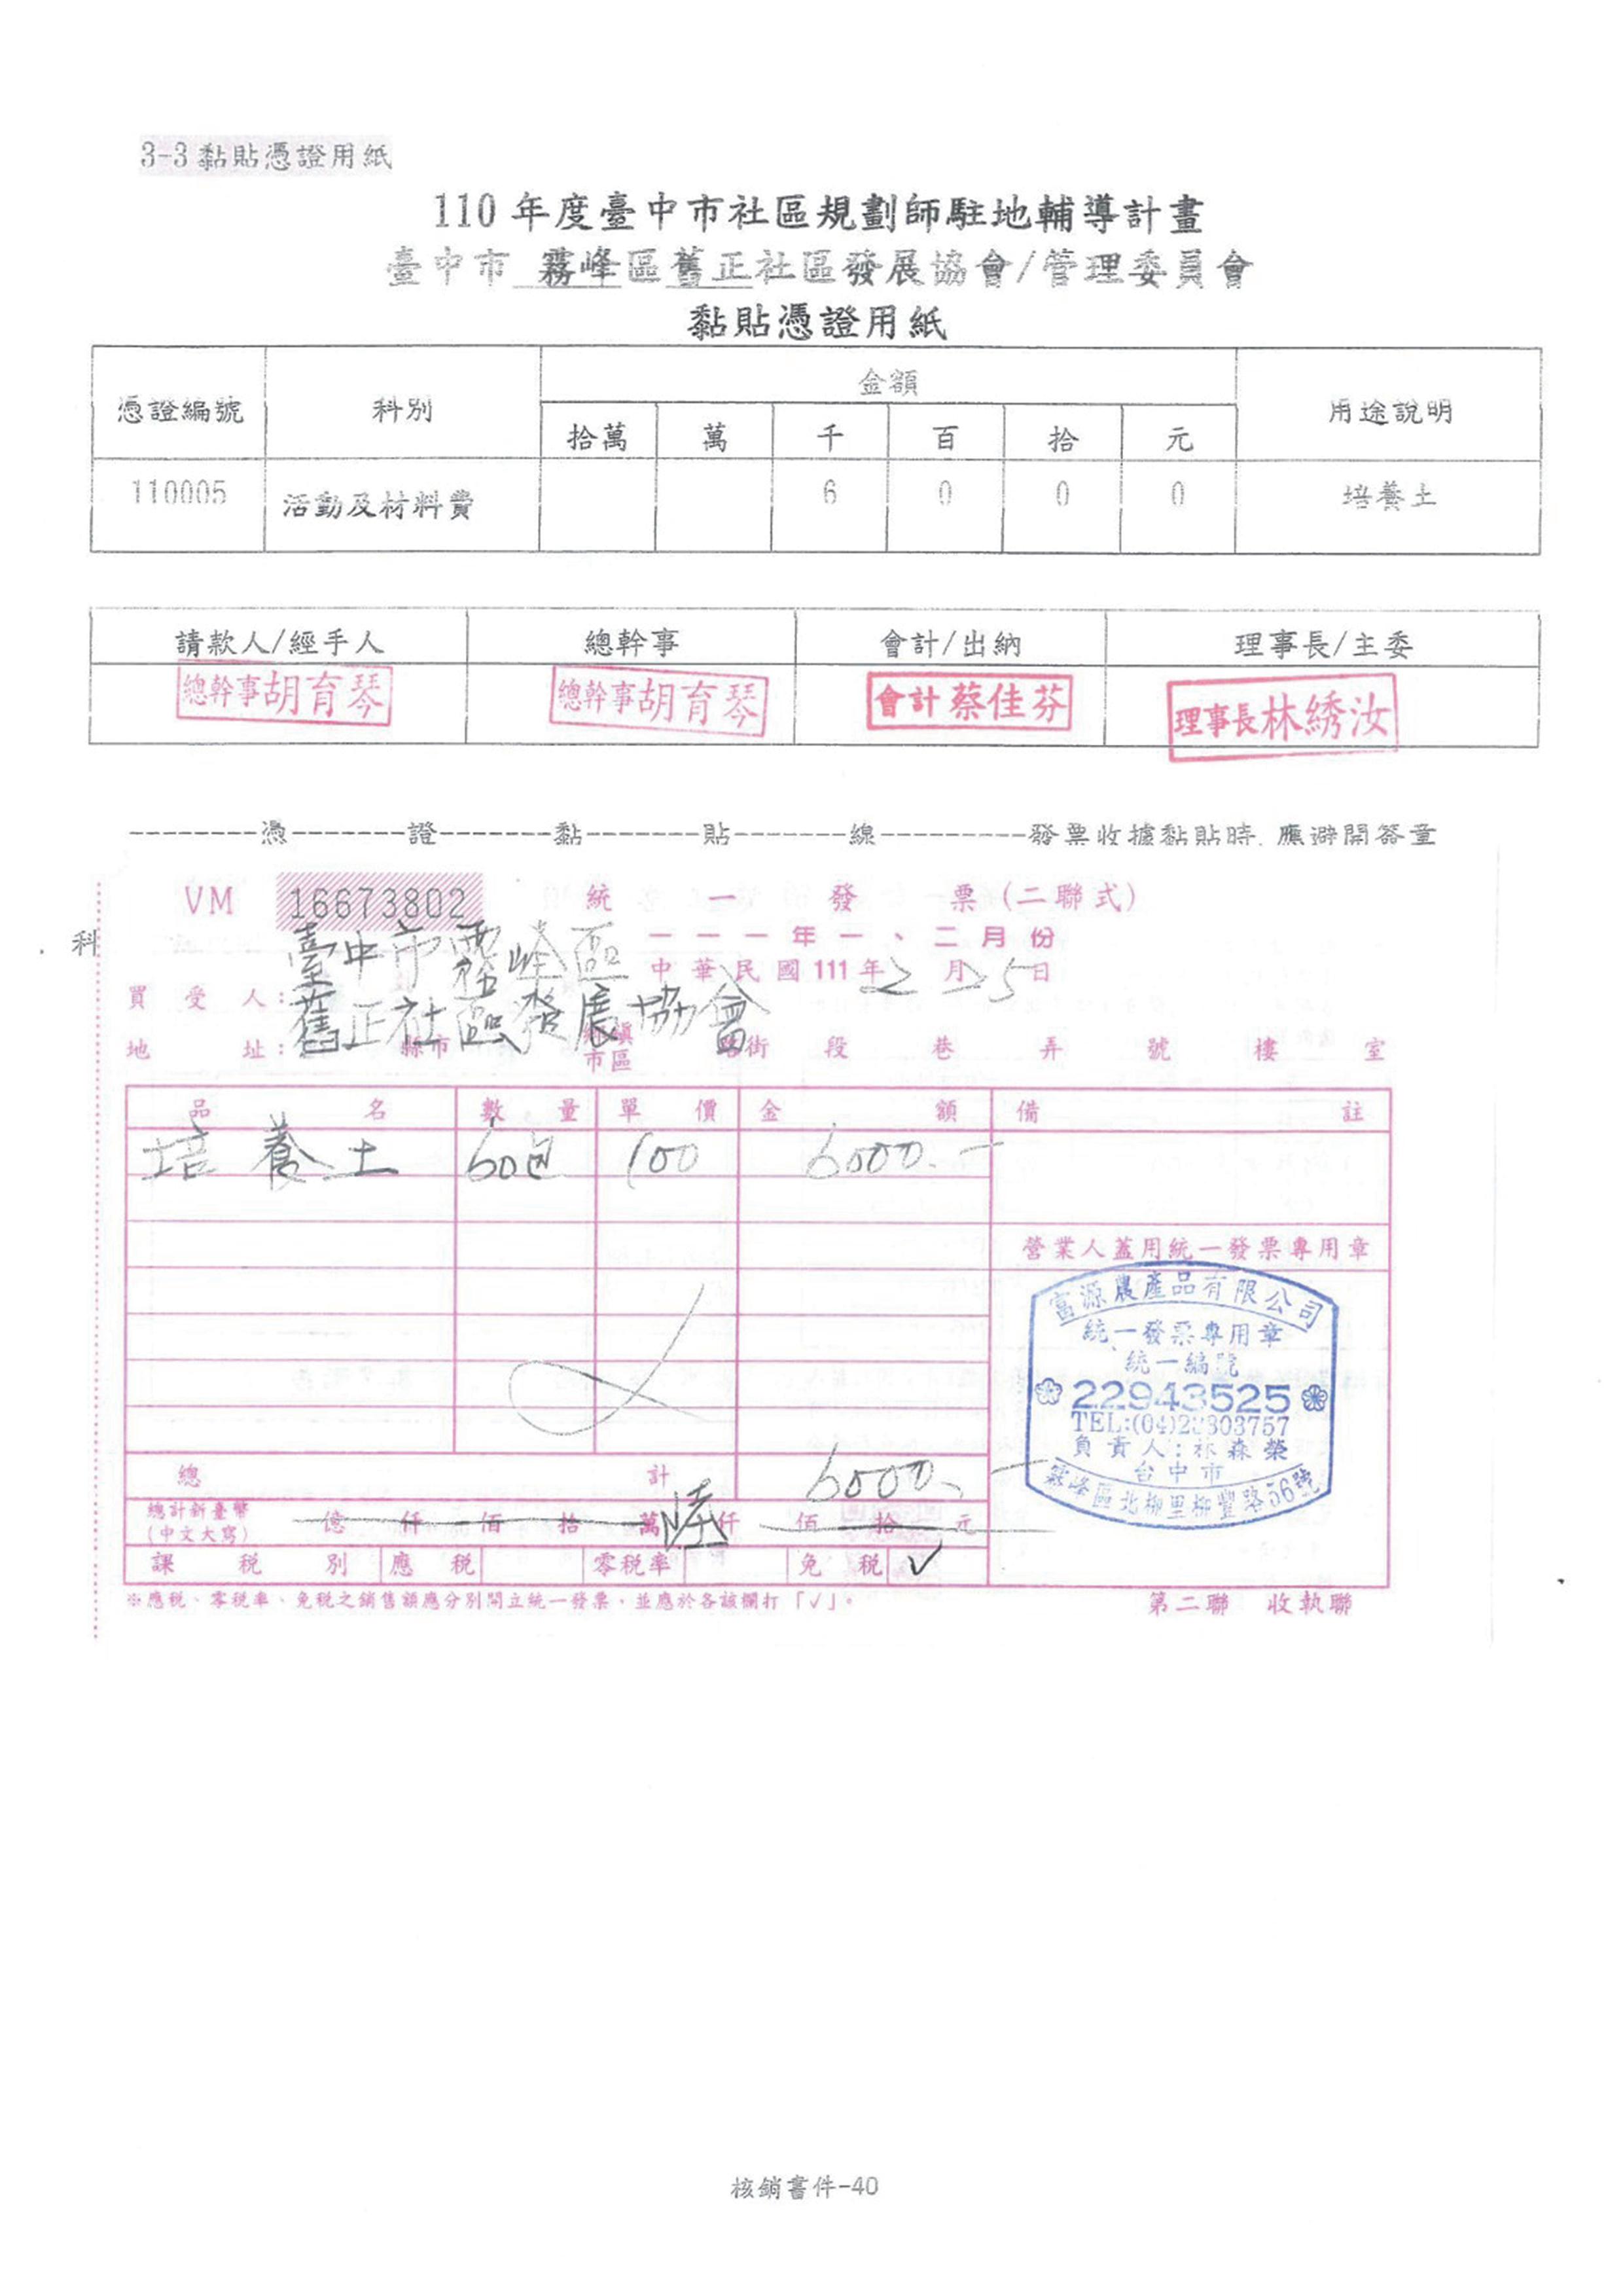 3-3 黏貼憑證用紙
110 年度臺中市社區規劃師駐地輔導計畫
臺中市 霧峰區舊正社區發展協會/管理委員會
黏貼憑證用紙
憑證編號 科別 金額 用途說明
拾萬 萬 千 百 拾 元
110005 活動及材料費 6 0 0 0 培養土
請款人/經手人 總幹事 會計/出納 理事長/主委
總幹事胡育琴 總幹事胡育琴 會計蔡佳芬 理事長林綉汝
--------憑-------證-------黏-------貼-------線---------發票收據黏貼時, 應避開簽章
VM 16673802 統一發票(二聯式)
科
一一一年一、二月份
臺中市霧峰區
中華民國111年2月25日
買受人:
舊正社區發展協會
地址: 縣市 鄉鎮市區 路街 段 巷 弄 號 樓 室
品名 數量 單價 金額 備註
培養土 60包 100 6000.-
營業人蓋用統一發票專用章
富源農產品有限公司
統一發票專用章
統一編號
22943525
負責人:林森榮
台中市
霧峰區北柳里柳豐路56號
總計 6000.-
總計新臺幣(中文大寫) 億 仟 佰 拾 萬 陸 仟 佰 拾 元
課稅別 應稅 零稅率 免稅 ✓
※應稅、零稅率、免稅之銷售額應分別開立統一發票,並應於各該欄打「✓」。
第二聯 收執聯
核銷書件-40